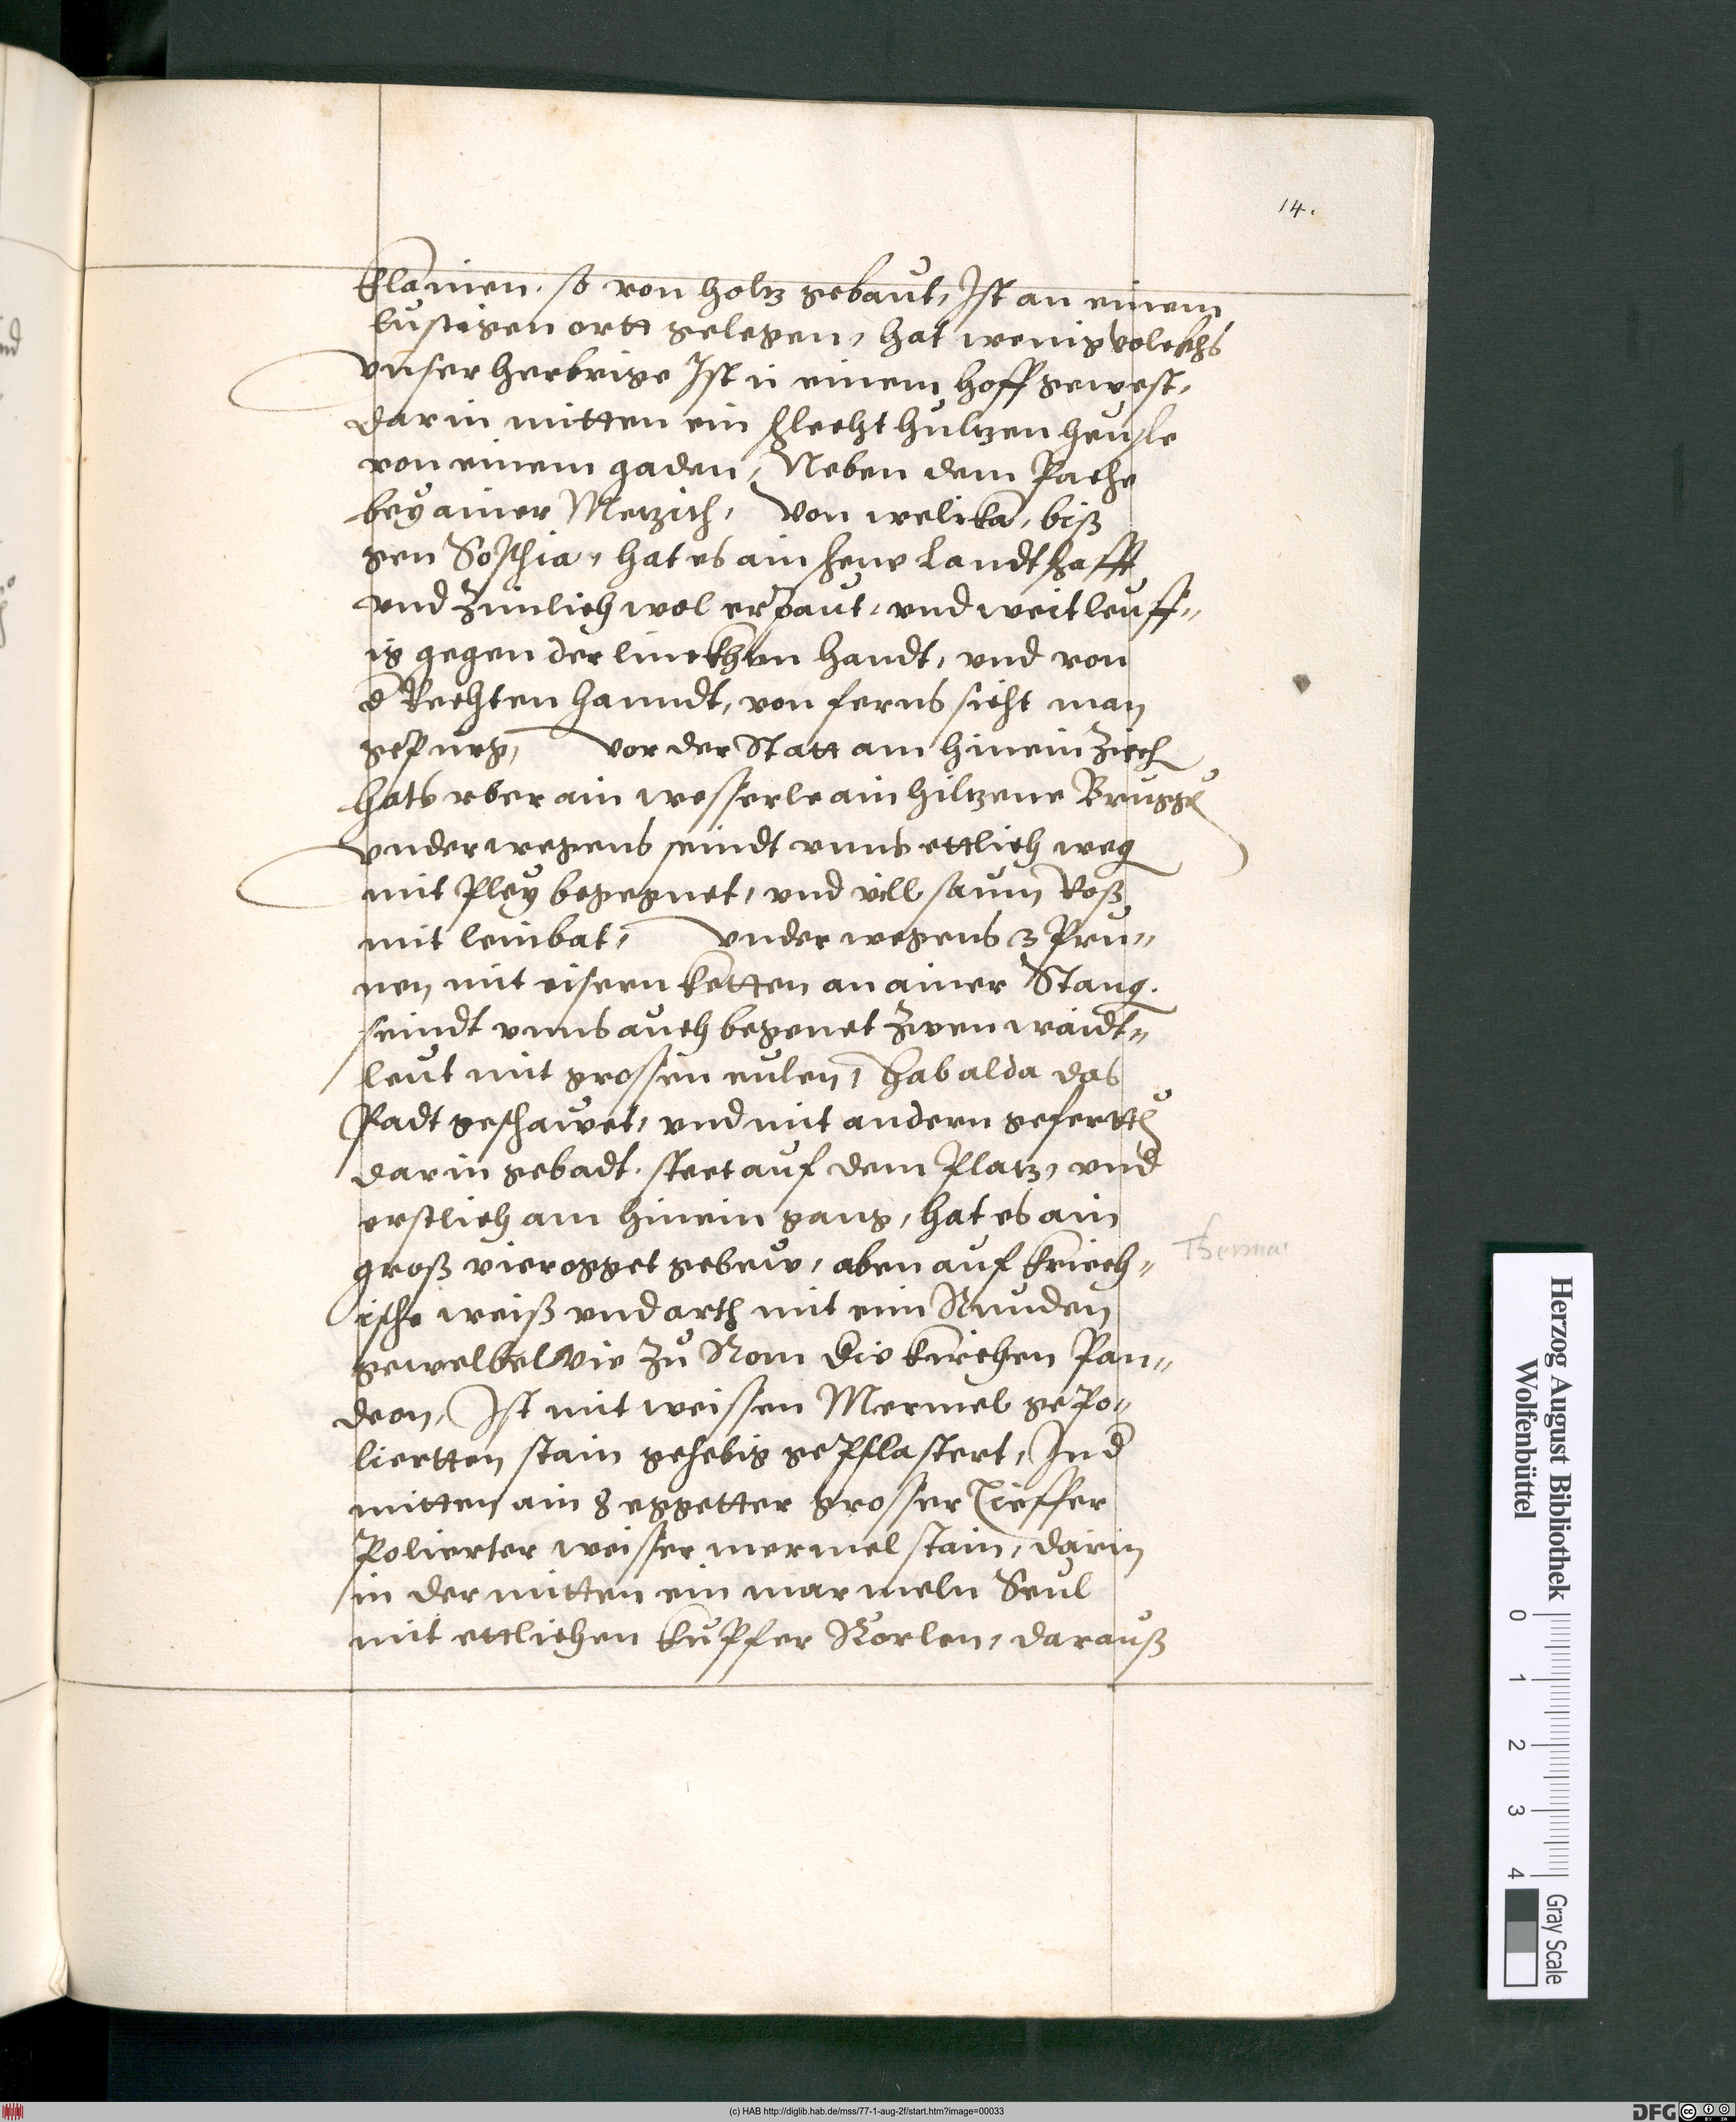 14.
klainen. so von holtz gebaut, Ist an einem
lustigen ortt gelegen, hat wenig volckhs
vnser herbrige Ist in einem hoff gewest,
darin mitten ein schlecht hultzen heusle
von einem gaden, Neben dem Pache
bey ainer Metzich, Von welika, biß
gen Soschia, hat es ain schene Landtschafft
vnd zimlich wol erpaut, vnd weitleuff„
ig gegen der linckhen handt, vnd von
d Rechten hanndt, von ferns sicht man
gepürg, vor der Statt am hinein ziech
hats vber ain wesserle ain hiltzene Brugg
vnderwegens seindt vnns ettlich weg
mit Pley begegnet, vnd vill saum Roß
mit leinbat, vnder wegens 3 Pru„
nen mit eisern ketten an ainer Stang.
seindt vnns auch begenet zwen waidt„
leut mit grossen eulen, hab alda das
Padt geschawet, vnd mit andern gefertt
darin gebadt. steet auf dem Platz, vnd
erstlich am hinein gang, hat es ain
groß vieregget gebew, aben auf kriech„
ische weiß vnd arth mit eim Runden
gewelbe Wie zu Rom die kirchen Pan„
deon, Ist mit weissen Mermel gepo„
liertten stain gehebig gepflastert, In d
mitten ain 8 eggetter grosser Tieffer
Polierter weisser mermel stain, darin
in der mitten ein marmeln Seul
mit ettlichen kupffer Rorlen, darauß
Thermae
Herzog August Bibliothek
Wolfenbüttel
0 1 2 3 4
Gray Scale
(c) HAB http://diglib.hab.de/mss/77-1-aug-2f/start.htm?image=00033
DFG